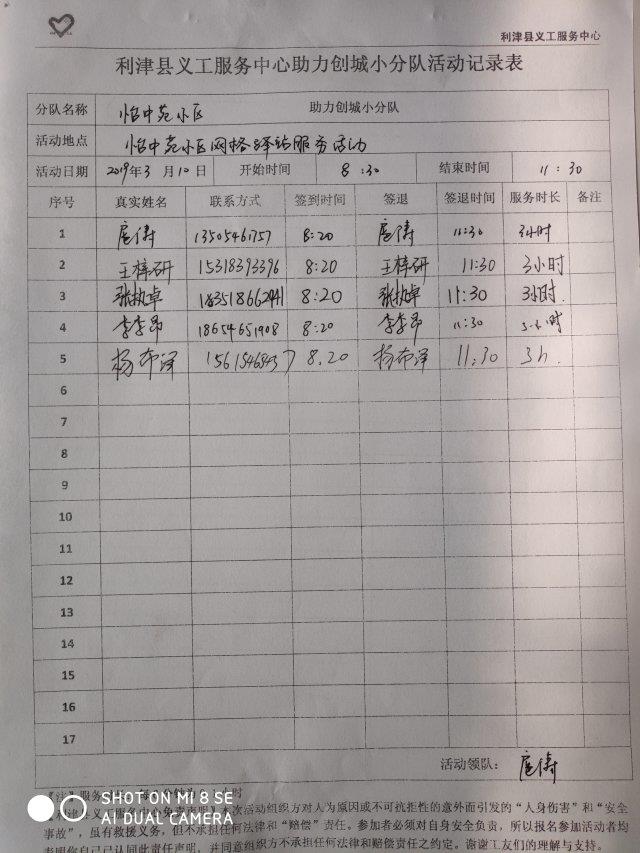 利津县义工服务中心
利津县义工服务中心助力创城小分队活动记录表
分队名称 怡中苑小区 助力创城小分队
活动地点 怡中苑小区网格驿站服务活动
活动日期 2019年3月10日 开始时间 8:30 结束时间 11:30
序号 真实姓名 联系方式 签到时间 签退 签退时间 服务时长 备注
1 扈俦 13505461757 8:20 扈俦 11:30 3小时
2 王梓研 15318393396 8:20 王梓研 11:30 3小时
3 张执卓 18351866 8:20 张执卓 11:30 3小时.
4 李李昂 18654651908 8:20 李李昂 11:30 3小时
5 杨布泽 15615468437 8.20 杨布泽 11:30 3h.
6
7
8
9
10
11
12
13
14
15
16
17
活动领队: 扈俦
本次活动组织方对人为原因或不可抗拒性的意外而引发的“人身伤害”和“安全
事故”，虽有救援义务，但不承担任何法律和“赔偿”责任。参加者必须对自身安全负责，所以报名参加活动者均
表明你自己已认同此责任声明，并同意组织方不承担任何法律和赔偿责任之约定。谢谢工友们的理解与支持。
SHOT ON MI 8 SE
AI DUAL CAMERA